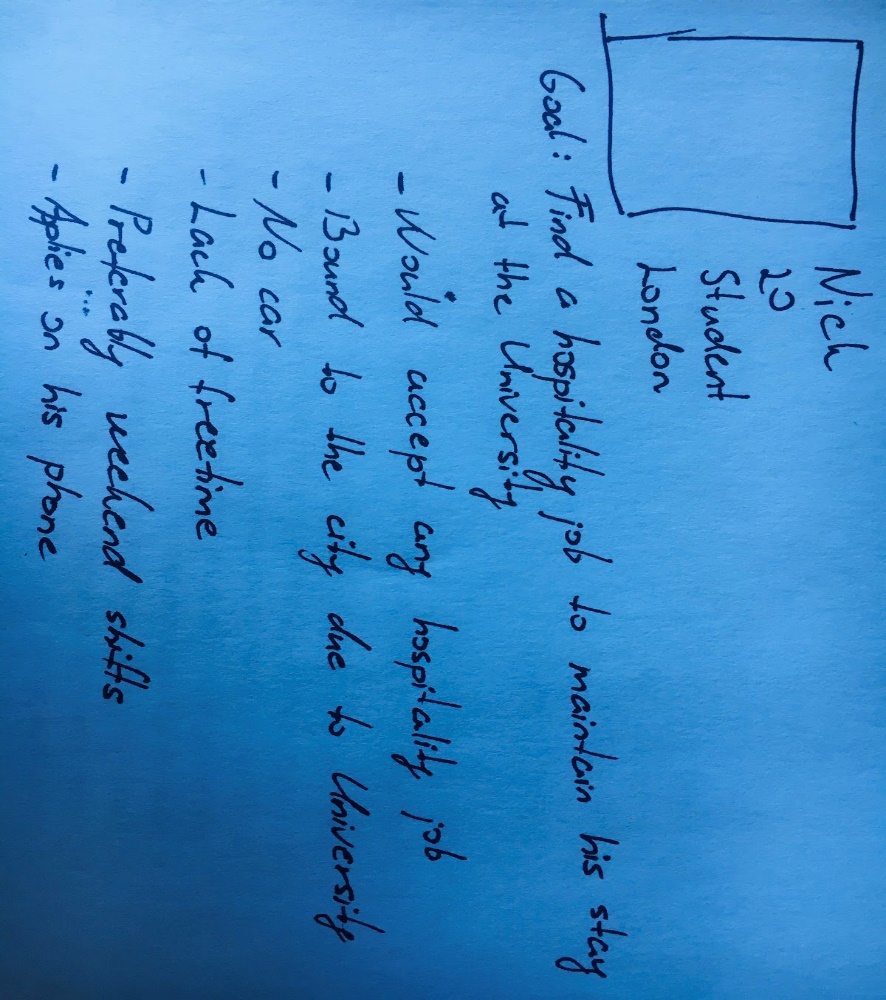 Nick
20
Student
London
Goal: Find a hospitality job to maintain his stay
at the University
- Would accept any hospitality job
- Bound to the city due to University
- No car
- Lack of freetime
- Preferably weekend shifts
- Applies on his phone